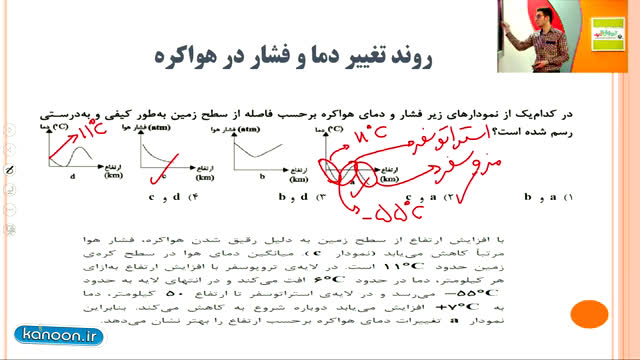 روند تغییر دما و فشار در هواکره
در کدام‌یک از نمودارهای زیر فشار و دمای هواکره برحسب فاصله از سطح زمین به‌طور کیفی و به‌درستی
رسم شده است؟
دما (°C)
فشار هوا (atm)
فشار هوا (atm)
دما (°C)
۱۱°C
۱۱°C
استراتوسفر
مزوسفر
-۵۵°C
ارتفاع (km)
ارتفاع (km)
ارتفاع (km)
ارتفاع (km)
d
c
b
a
۱) a و b
۲) a و c
۳) d و b
۴) d و c
با افزایش ارتفاع از سطح زمین به دلیل رقیق شدن هواکره، فشار هوا
مرتباً کاهش می‌یابد (نمودار c). میانگین دمای هوا در سطح کره‌ی
زمین حدود ۱۱°C است. در لایه‌ی تروپوسفر با افزایش ارتفاع به‌ازای
هر کیلومتر، دما در حدود ۶°C افت می‌کند و در انتهای لایه به حدود
-۵۵°C می‌رسد و در لایه‌ی استراتوسفر تا ارتفاع ۵۰ کیلومتر، دما
به +۷°C افزایش می‌یابد دوباره شروع به کاهش می‌کند. بنابراین
نمودار a تغییرات دمای هواکره برحسب ارتفاع را بهتر نشان می‌دهد.
kanoon.ir